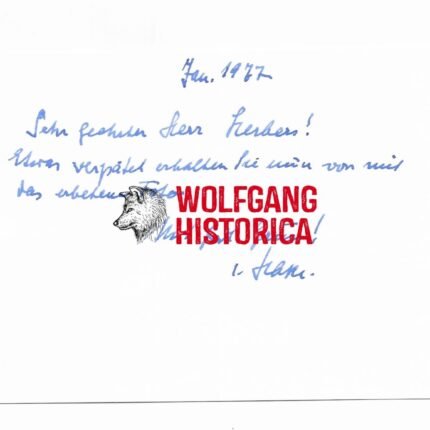 Jan. 1977
Sehr geehrter Herr Herbers!
Etwas verspätet erhalten Sie nun von mir
das erbetene Foto
WOLFGANG
HISTORICA